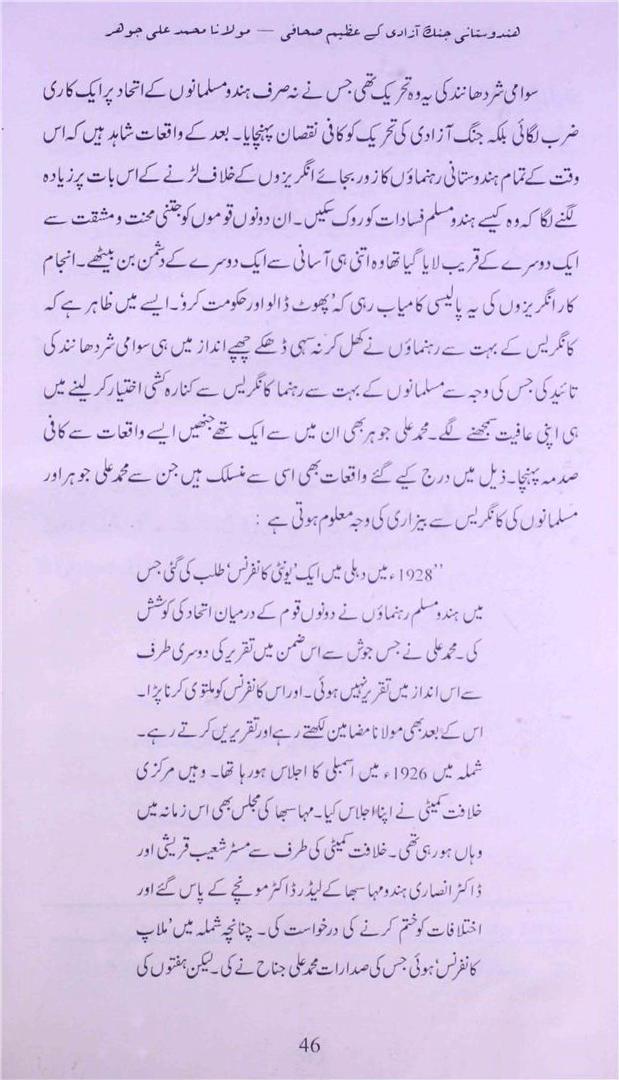 ہندوستانی جنگ آزادی کے عظیم صحافی — مولانا محمد علی جوہر
سوامی شردھانند کی یہ وہ تحریک تھی جس نے نہ صرف ہندو مسلمانوں کے اتحاد پر ایک کاری
ضرب لگائی بلکہ جنگ آزادی کی تحریک کو کافی نقصان پہنچایا۔ بعد کے واقعات شاہد ہیں کہ اس
وقت کے تمام ہندوستانی رہنماؤں کا زور بجائے انگریزوں کے خلاف لڑنے کے اس بات پر زیادہ
لگنے لگا کہ وہ کیسے ہندو مسلم فسادات کو روک سکیں۔ ان دونوں قوموں کو جتنی محنت و مشقت سے
ایک دوسرے کے قریب لایا گیا تھا وہ اتنی ہی آسانی سے ایک دوسرے کے دشمن بن بیٹھے۔ انجام
کار انگریزوں کی یہ پالیسی کامیاب رہی کہ 'پھوٹ ڈالو اور حکومت کرو'۔ ایسے میں ظاہر ہے کہ
کانگریس کے بہت سے رہنماؤں نے کھل کر نہ سہی ڈھکے چھپے انداز میں ہی سوامی شردھانند کی
تائید کی جس کی وجہ سے مسلمانوں کے بہت سے رہنما کانگریس سے کنارہ کشی اختیار کر لینے میں
ہی اپنی عافیت سمجھنے لگے۔ محمد علی جوہر بھی ان میں سے ایک تھے جنھیں ایسے واقعات سے کافی
صدمہ پہنچا۔ ذیل میں درج کیے گئے واقعات بھی اسی سے منسلک ہیں جن سے محمد علی جوہر اور
مسلمانوں کی کانگریس سے بیزاری کی وجہ معلوم ہوتی ہے :
"1928ء میں دہلی میں ایک 'یونٹی کانفرنس' طلب کی گئی جس
میں ہندو مسلم رہنماؤں نے دونوں قوم کے درمیان اتحاد کی کوشش
کی۔ محمد علی نے جس جوش سے اس ضمن میں تقریر کی دوسری طرف
سے اس انداز میں تقریر نہیں ہوئی۔ اور اس کانفرنس کو ملتوی کرنا پڑا۔
اس کے بعد بھی مولانا مضامین لکھتے رہے اور تقریریں کرتے رہے۔
شملہ میں 1926ء میں اسمبلی کا اجلاس ہو رہا تھا۔ وہیں مرکزی
خلافت کمیٹی نے اپنا اجلاس کیا۔ مہاسبھا کی مجلس بھی اس زمانہ میں
وہاں ہو رہی تھی۔ خلافت کمیٹی کی طرف سے مسٹر شعیب قریشی اور
ڈاکٹر انصاری ہندو مہاسبھا کے لیڈر ڈاکٹر مونجے کے پاس گئے اور
اختلافات کو ختم کرنے کی درخواست کی۔ چنانچہ شملہ میں 'ملاپ
کانفرنس' ہوئی جس کی صدارات محمد علی جناح نے کی۔ لیکن ہفتوں کی
46